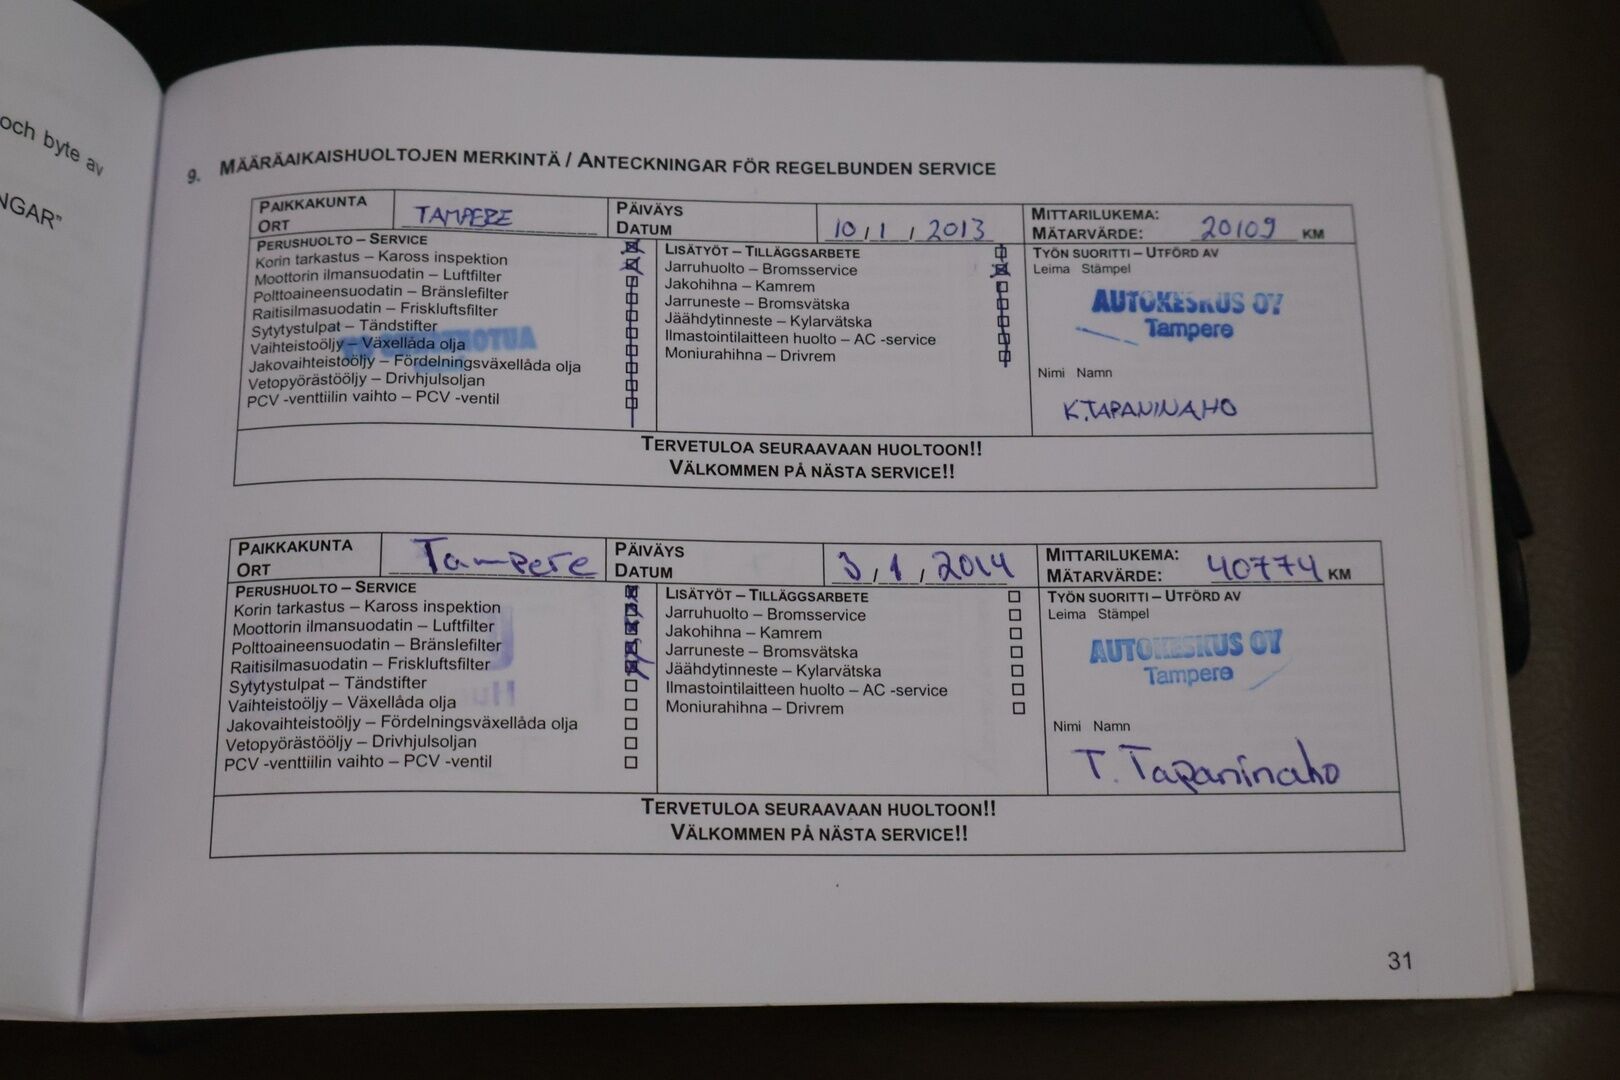 och byte av
NGAR"
9. MÄÄRÄAIKAISHUOLTOJEN MERKINTÄ / ANTECKNINGAR FÖR REGELBUNDEN SERVICE
PAIKKAKUNTA
ORT
TAMPERE
PÄIVÄYS
DATUM
10 / 1 / 2013
MITTARILUKEMA:
MÄTARVÄRDE: 20109 KM
PERUSHUOLTO – SERVICE
Korin tarkastus – Kaross inspektion
Moottorin ilmansuodatin – Luftfilter
Polttoaineensuodatin – Bränslefilter
Raitisilmasuodatin – Friskluftsfilter
Sytytystulpat – Tändstifter
Vaihteistoöljy – Växellåda olja
Jakovaihteistoöljy – Fördelningsväxellåda olja
Vetopyörästööljy – Drivhjulsoljan
PCV -venttiilin vaihto – PCV -ventil
LISÄTYÖT – TILLÄGGSARBETE
Jarruhuolto – Bromsservice
Jakohihna – Kamrem
Jarruneste – Bromsvätska
Jäähdytinneste – Kylarvätska
Ilmastointilaitteen huolto – AC -service
Moniurahihna – Drivrem
TYÖN SUORITTI – UTFÖRD AV
Leima Stämpel
AUTOKESKUS OY
Tampere
Nimi Namn
K.TAPANINAHO
TERVETULOA SEURAAVAAN HUOLTOON!!
VÄLKOMMEN PÅ NÄSTA SERVICE!!
PAIKKAKUNTA
ORT
Tampere
PÄIVÄYS
DATUM
3 / 1 / 2014
MITTARILUKEMA:
MÄTARVÄRDE: 40774 KM
PERUSHUOLTO – SERVICE
Korin tarkastus – Kaross inspektion
Moottorin ilmansuodatin – Luftfilter
Polttoaineensuodatin – Bränslefilter
Raitisilmasuodatin – Friskluftsfilter
Sytytystulpat – Tändstifter
Vaihteistoöljy – Växellåda olja
Jakovaihteistoöljy – Fördelningsväxellåda olja
Vetopyörästööljy – Drivhjulsoljan
PCV -venttiilin vaihto – PCV -ventil
LISÄTYÖT – TILLÄGGSARBETE
Jarruhuolto – Bromsservice
Jakohihna – Kamrem
Jarruneste – Bromsvätska
Jäähdytinneste – Kylarvätska
Ilmastointilaitteen huolto – AC -service
Moniurahihna – Drivrem
TYÖN SUORITTI – UTFÖRD AV
Leima Stämpel
AUTOKESKUS OY
Tampere
Nimi Namn
T. Tapaninaho
TERVETULOA SEURAAVAAN HUOLTOON!!
VÄLKOMMEN PÅ NÄSTA SERVICE!!
31